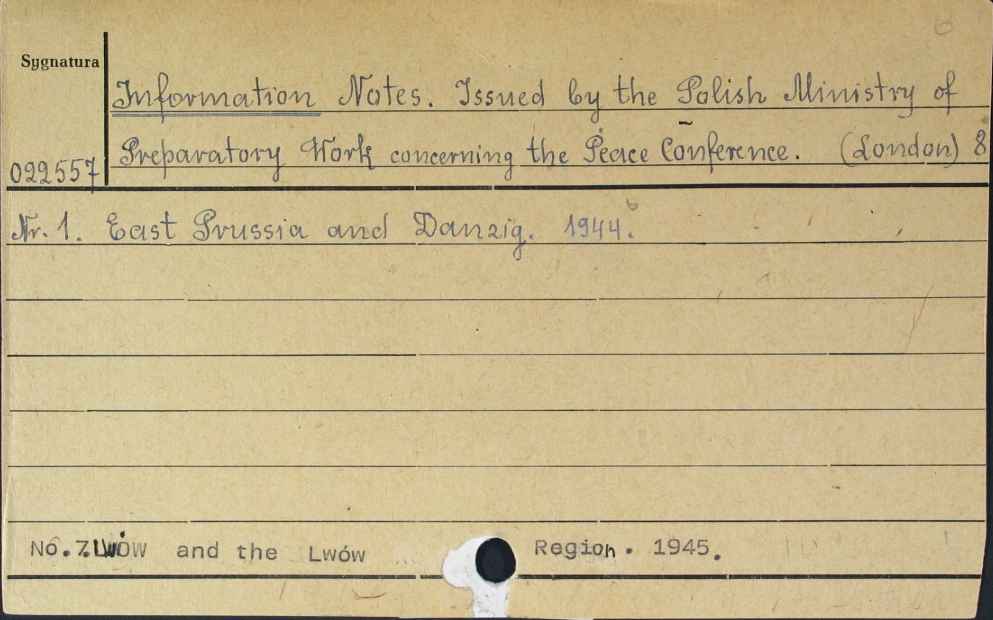 Sygnatura
Information Notes. Issued by the Polish Ministry of
Preparatory Work concerning the Peace Conference. (London) 8
022557
Nr. 1. East Prussia and Danzig. 1944.
No.7.Lwów and the Lwów Region. 1945.